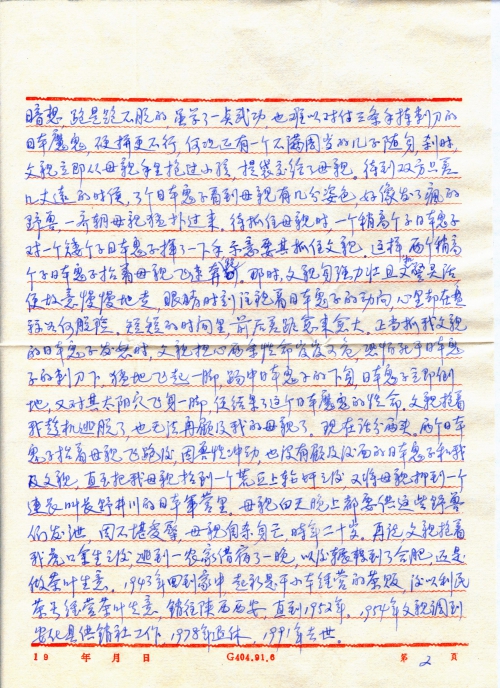 暗想 路是跑不脱的，虽学了一点武功，也难以对付三条手持刺刀的
日本魔鬼，硬拼更不行，何况还有一个不满周岁的儿子随身，刹时，
父亲立即从母亲手里抢过小孩，提袋交给了母亲。待到双方只差
几丈远的时候，3个日本鬼子看到母亲有几分姿色，好像发了疯的
野兽，一齐朝母亲猛扑过来。待抓住母亲时，一个稍高个子日本鬼子
对一个矮个子日本鬼子挥了一下手 示意要其抓住父亲。这样 两个稍高
个子日本鬼子抬着母亲飞速奔跑。那时，父亲身强力壮且灵活
便故意慢慢地走，眼睛时刻注视着日本鬼子的动向，心里却在盘
算如何脱险。短短的时间里 前后差距愈来愈大。正当抓我父亲
的日本鬼子发怒时，父亲担心两条性命岌岌可危，恐怕死于日本鬼
子的刺刀下，猛地飞起一脚，踢中日本鬼子的下身 日本鬼子立即倒
地，又对其太阳穴飞身一脚，便结果了这个日本魔鬼的性命。父亲抱着
我趁机逃脱了，也无法再顾及我的母亲了。现在话分两头。两个日本
鬼子抬着母亲飞跑后，因兽性冲动，也没有顾及后面的日本鬼子和我
及父亲，直至把我母亲抬到一个荒丘上轮奸之后 又将母亲押到一个
连长叫长野井川的日本军营里。母亲白天晚上都要供这些野兽
们发泄，因不堪受辱 母亲自杀身亡 时年二十岁。再说父亲抱着
我虎口余生之后 逃到一农家借宿了一晚，以后辗转到了合肥，还是
做茶叶生意。1943年回到家中 起初是干小车经营的茶贩 后以利民
茶号经营茶叶生意，销往陕西西安，直到1952年。1954年父亲调到
安化县供销社工作，1978年退休，1991年去世。
19 年 月 日 G404.91.6 第 2 页